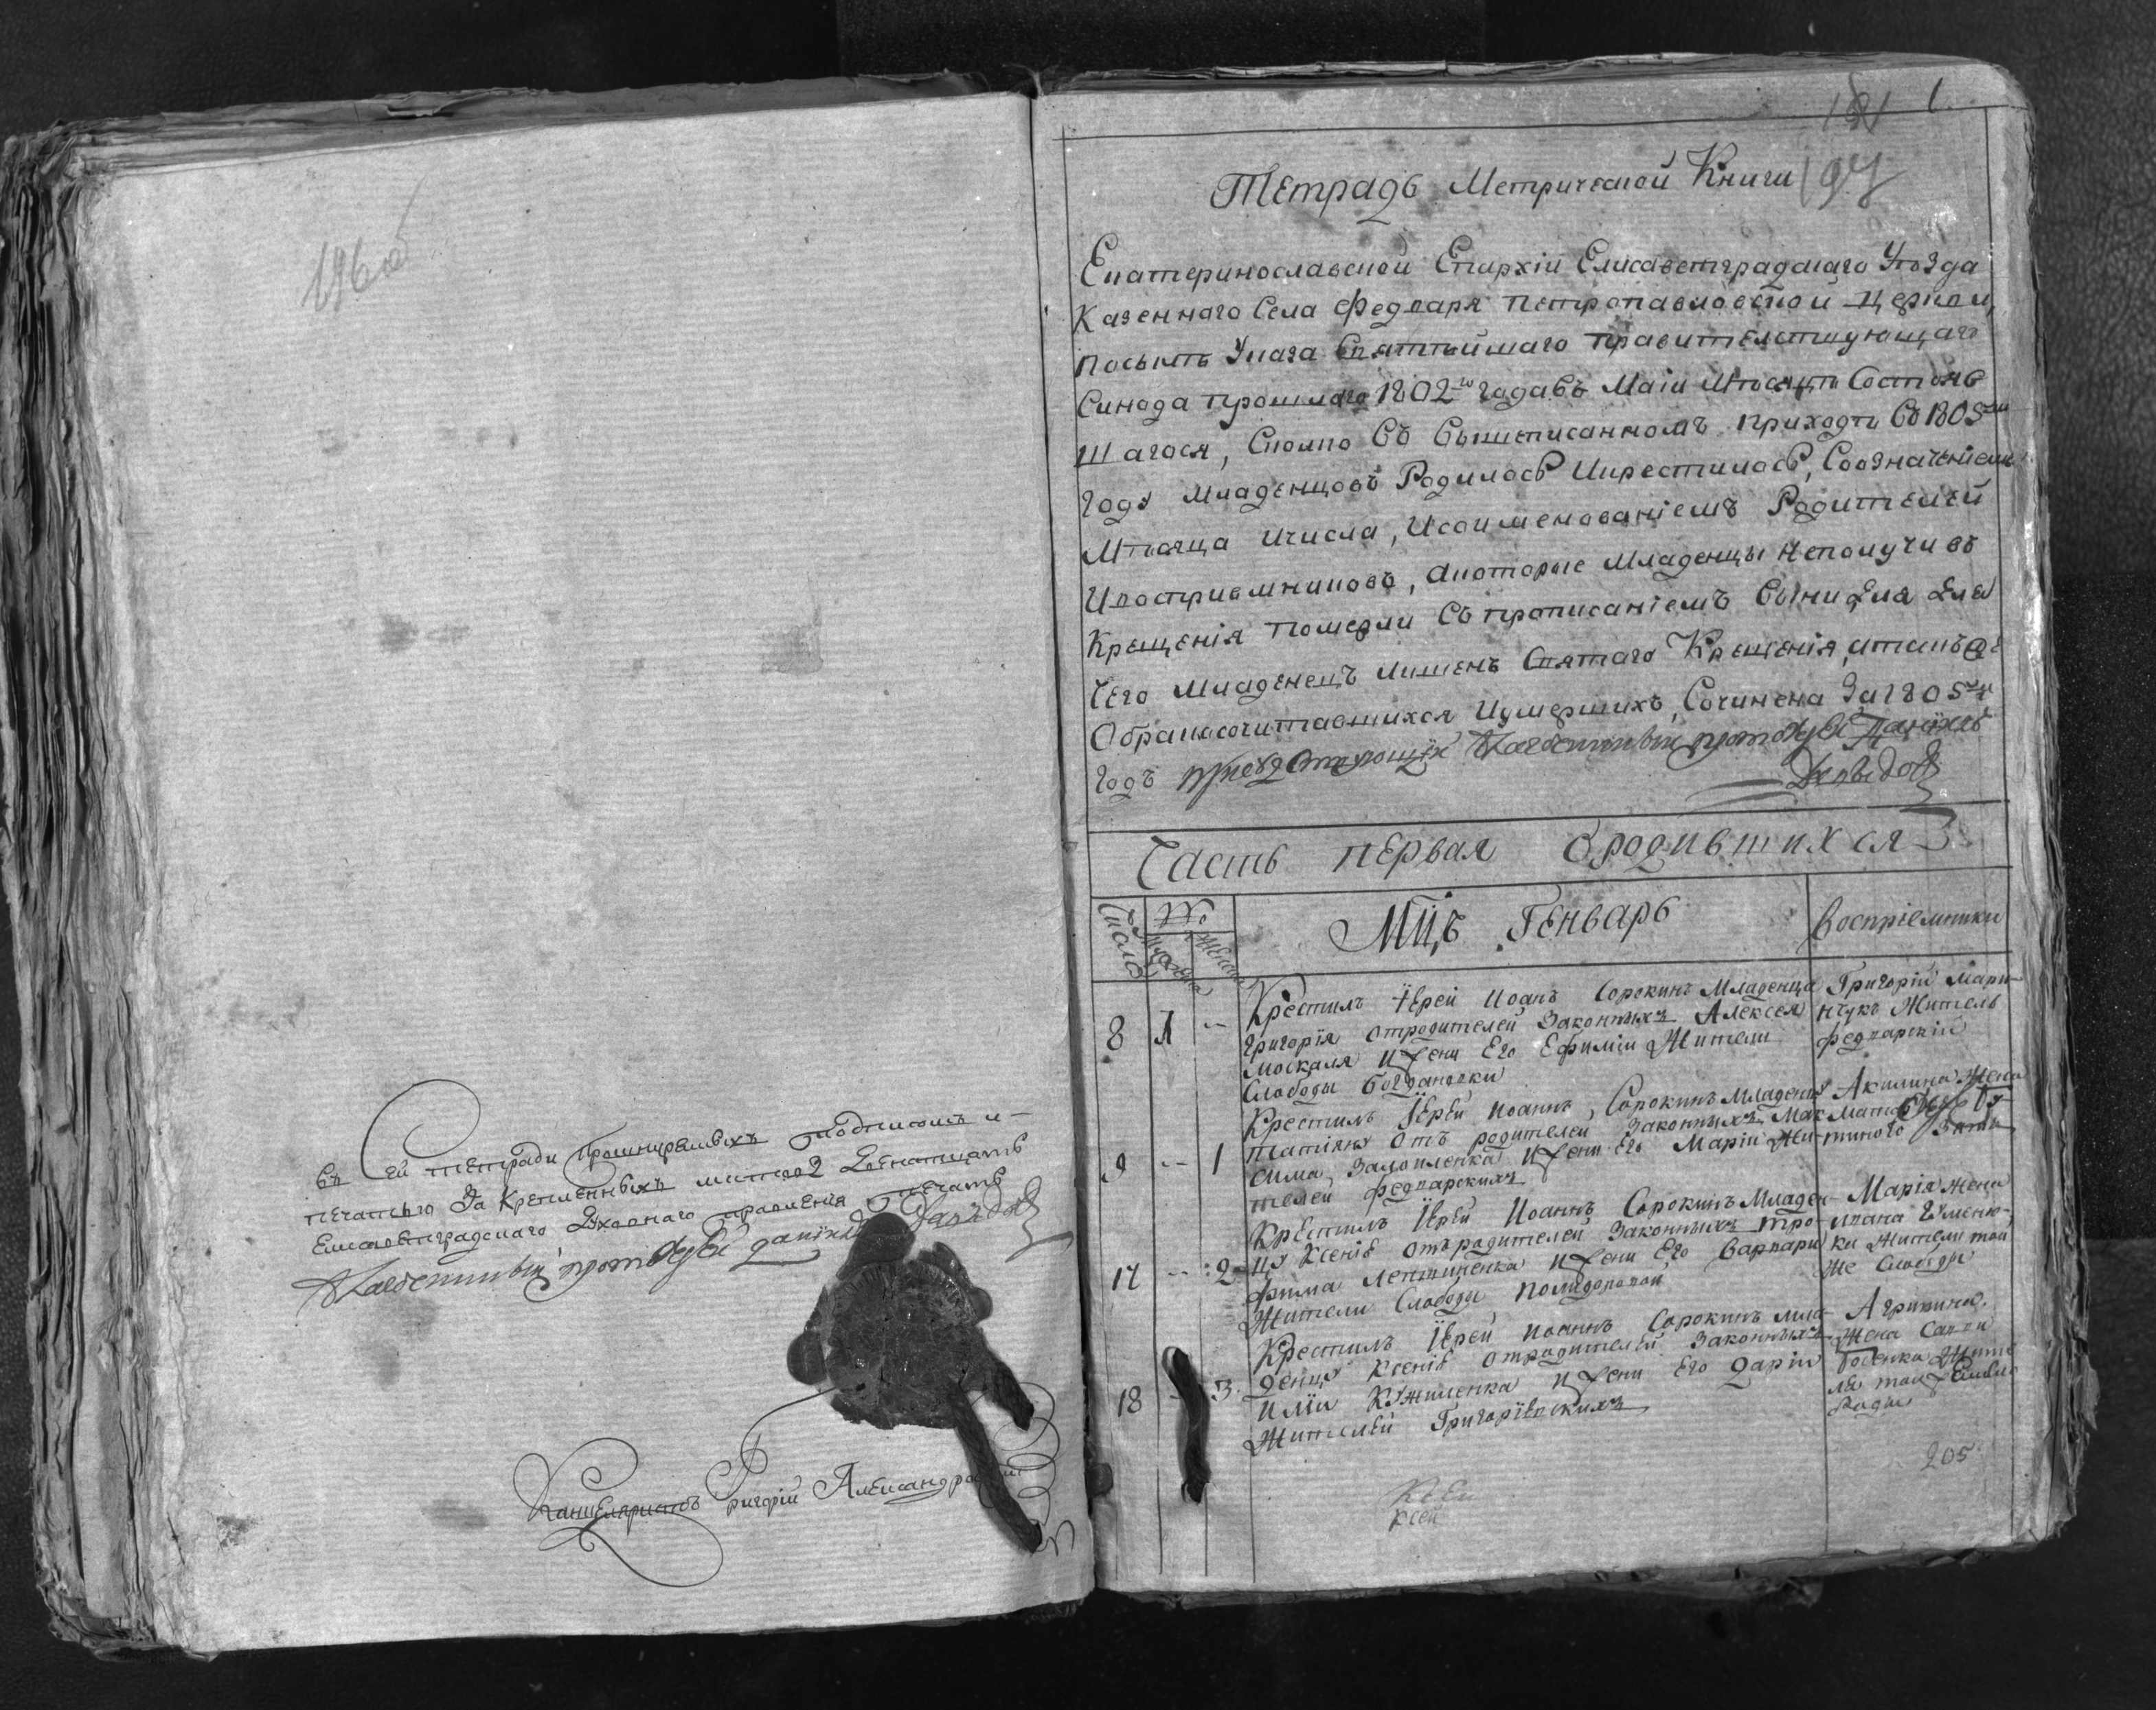 196об
Въ сей тетради прошнуренныхъ подписомъ и
печатью закрепленныхъ листов двенатцать
Елисаветградскаго Духовнаго правления печать
протоиерей Даниилъ Давидовъ
Канцеляристъ Григорій Александровский
181 1
197
Тетрадь Метрической Книги
Екатеринославской Епархіи Елисаветградскаго Уѣзда
Казеннаго Села Федваря Петропавловской Церкви,
Посылѣ Указа Святѣйшаго правителствующаго
Синода прошлаго 1802го года въ Маіи Мѣсяцѣ Состояв
шагося, Сколко въ вышеписанномъ приходѣ въ 1805мъ
Году Младенцовъ Родилось Икрестилось, Соозначеніемъ
Мѣсяца Ичисла, Исоименованіемъ Родителей
Ивоспріемниковъ, Акоторые Младенцы Неполучивъ
Крещенія Померли Съ прописаніемъ Вини Для Для
Чего Младенецъ лишенъ Святаго Крещенія, итакъ же
Обракосочитавшихся Иумершихъ, Сочинена За 1805й
Годъ присудствующій протоиерей Даніилъ
Давидовъ
Часть первая О родившихся
Число
№
мужска
женска
Мцъ Генварь
Воспріемники
8 1 --
Крестилъ Іерей Иоанъ Сорокинъ Младенца
Григорія отродителей Законныхъ Алексея
Москаля и жени Его Ефиміи Жители
Слободы Богдановки
Григорій Мари-
нчукъ Житель
федварскій
9 -- 1
Крестилъ Іерей Иоаннъ Сорокинъ Младенц
Татіяну Отъ родителей Законныхъ Мак
сима Залопленка и жени Его Маріи Жи
телей Федварскихъ
Акилина Жена
17 -- 2
Крестилъ Іерей Иоаннъ Сорокинъ Младен-
цу Ксенію Отъродителей Законныхъ Тро-
фима и жени Его Варвари
Жители Слободы
Марія Жена
Ивана Гумено-
ки Жители той
же Слободы
18 - 3.
Крестилъ Іерей Иоаннъ Сорокинъ мла-
денцу Ксенію Отродителей Законныхъ
и жени Его Дарии
Жителей Григорїевскихъ
Агрипина
Жена
205
Ксен